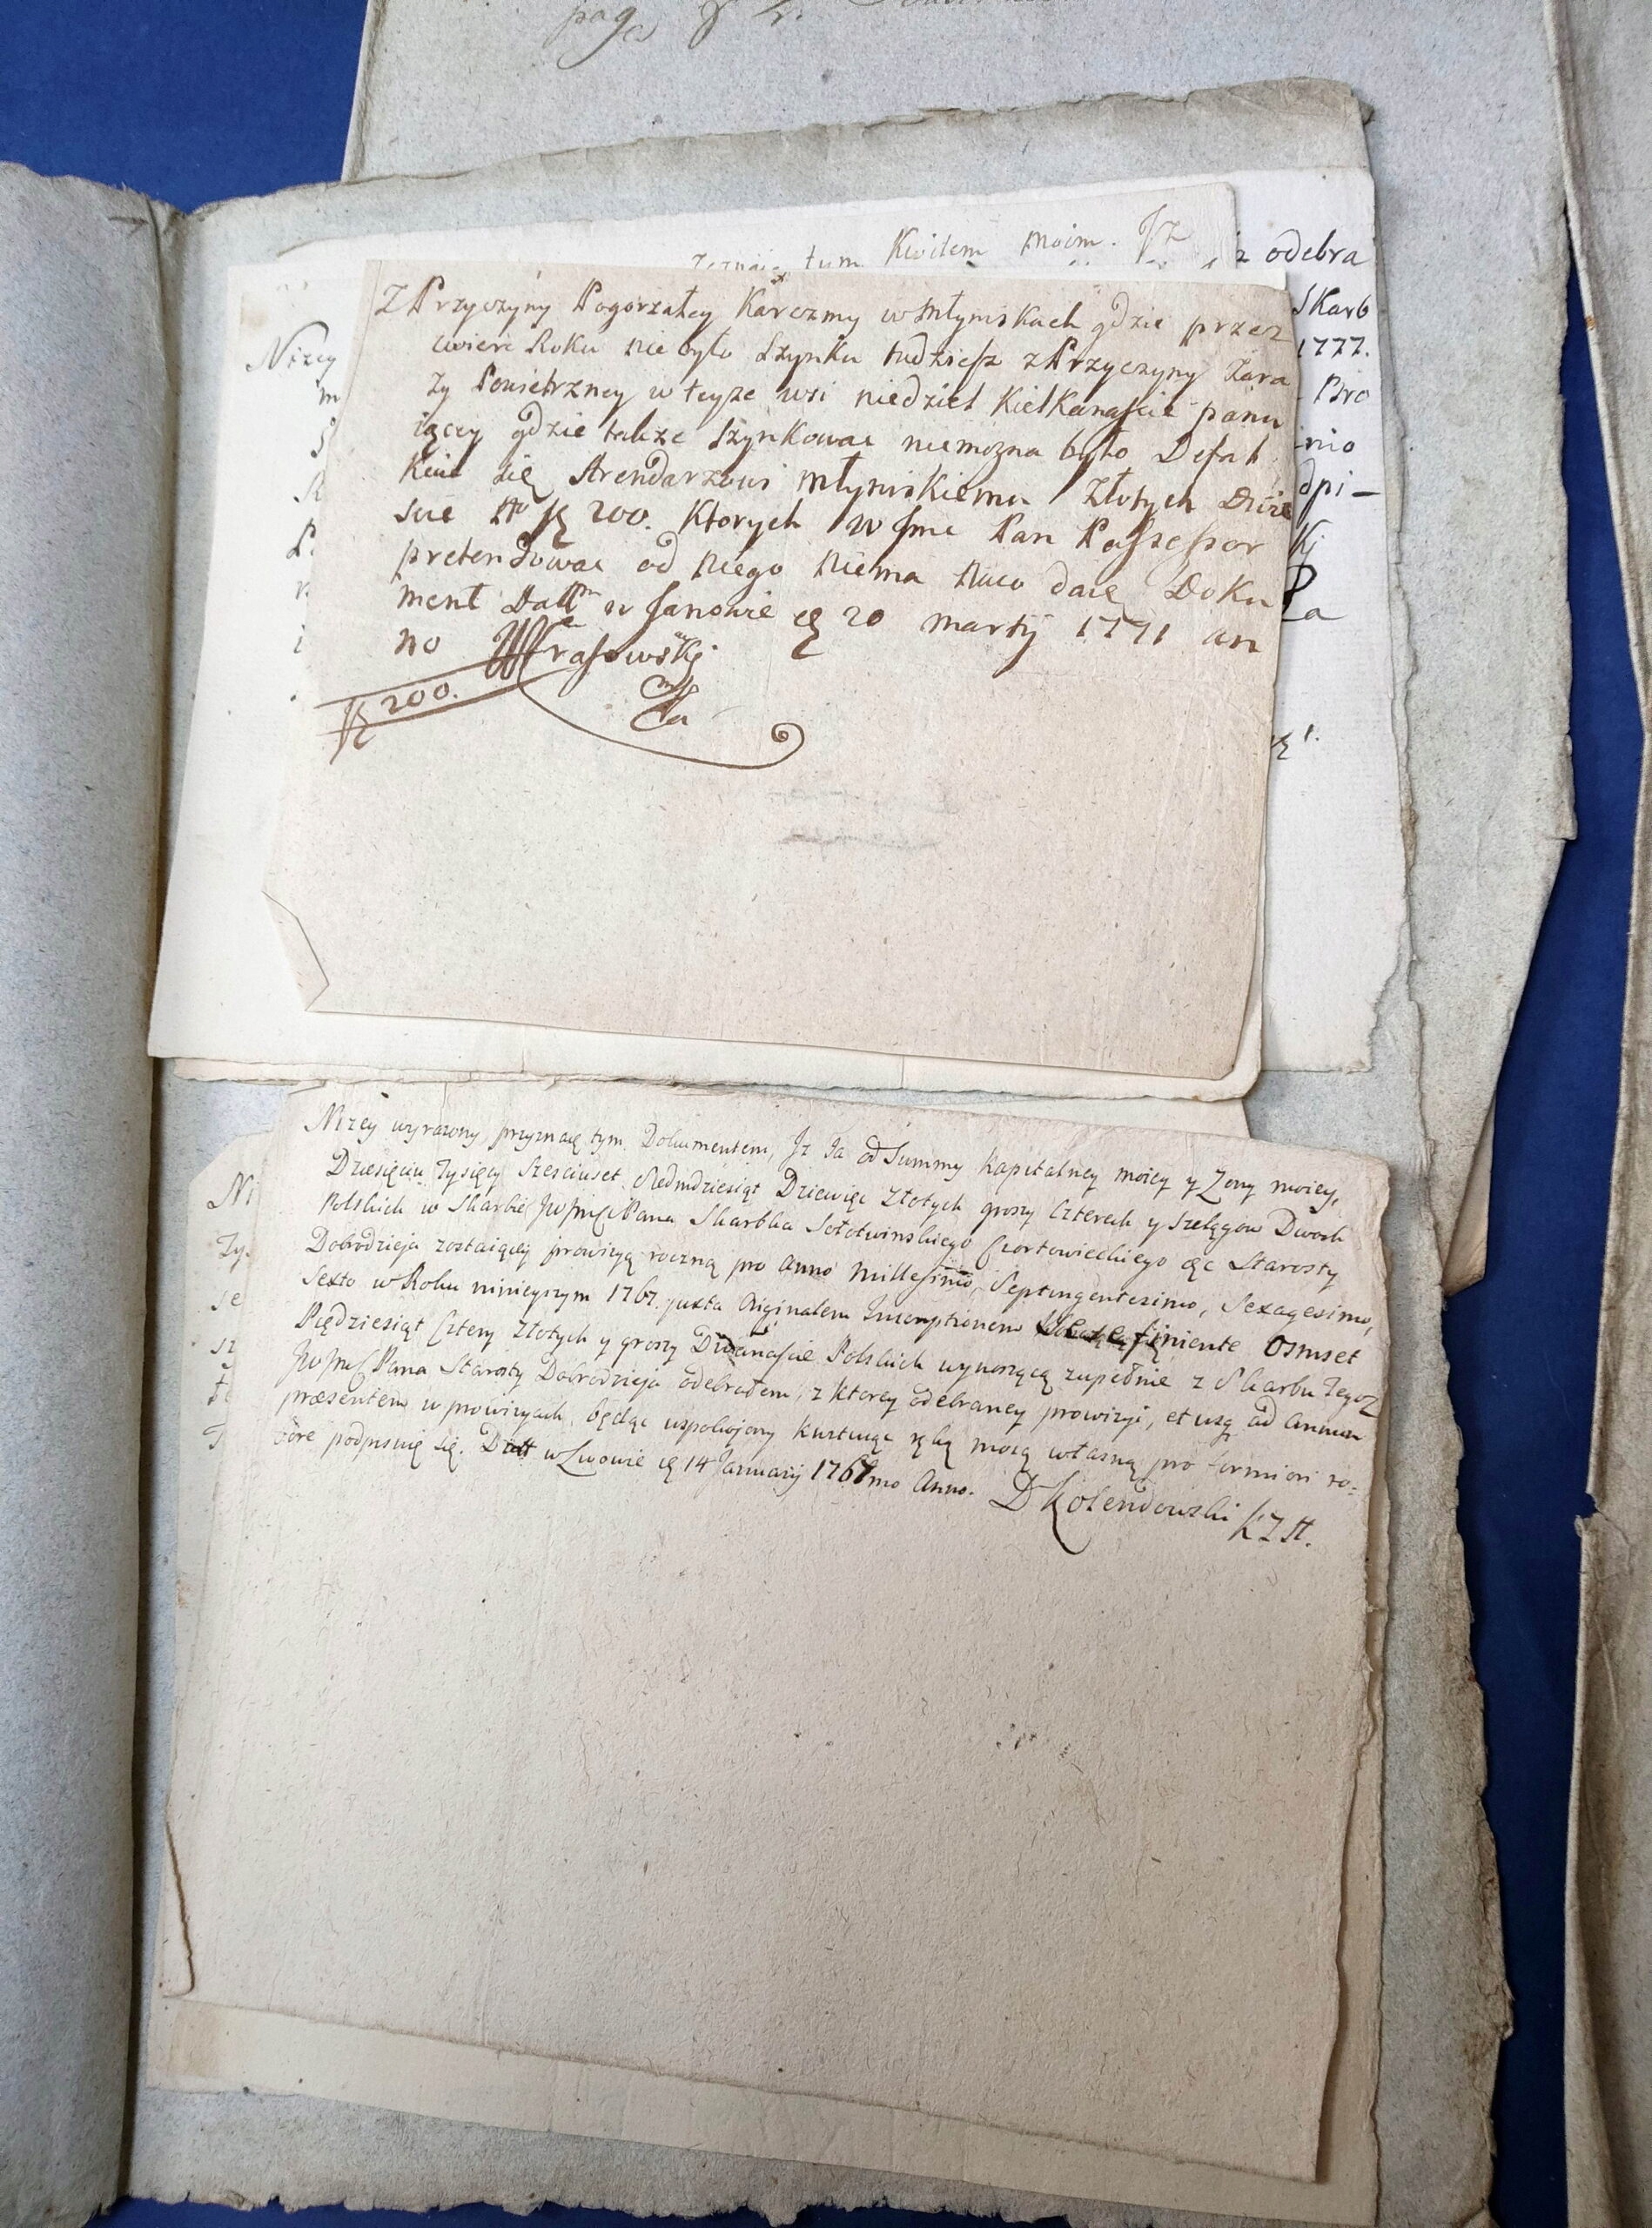 pag
Kwitem moim. Iż
odebra
Skarb
1777.
Pro
nio
dpi-
Nizey
Z Przyczyny Pogorzałey Karczmy w Młyniskach gdzie przez
cwierc Roku nie było Szynku tudziesz z Przyczyny Zara
zy Powietrzney w teyze wsi niedziel kielkanascie panu
iącey gdzie takze szynkowac niemozna było Defal
kuie się Arendarzowi młyniskiemu Złotych Dwie
scie 200. Ktorych Pan Passessor
pretendowac od niego niema na co daię Doku
ment Datt w Janowie 20 martij 1771 an
no
200.
Nizey wyrazony przyznaię tym Dokumentem, Iz Ja od Summy Kapitalney moiey y Zony moiey,
Dziesięciu Tysięcy Szesciuset Siedmdziesiąt Dziewięc Złotych groszy Czterech y Szelągow Dwoch
Polskich w Skarbie Pana Skarbka Sołotwinskiego Czortowieckiego &c Starosty
Dobrodzieja zostaiącey prowizyą roczną pro Anno Millesimo, Septingentesimo, Sexagesimo,
Sexto w Roku ninieyszym 1767. juxta Originalem Inscriptionem finiente Osmset
Piędziesiąt Cztery Złotych y groszy Dwanascie Polskich wynoszącą zupełnie z Skarbu Tegoz
Pana Starosty Dobrodzieja odebrałem, z ktorey odebraney prowizyi, et usq ad Annum
præsentem w prowizyach będąc uspokojony Kwituąc ręką moią własną pro firmiori ro=
bore podpisuię się. Datt w Lwowie 14 Januarij 1767mo Anno. D Kolendowski